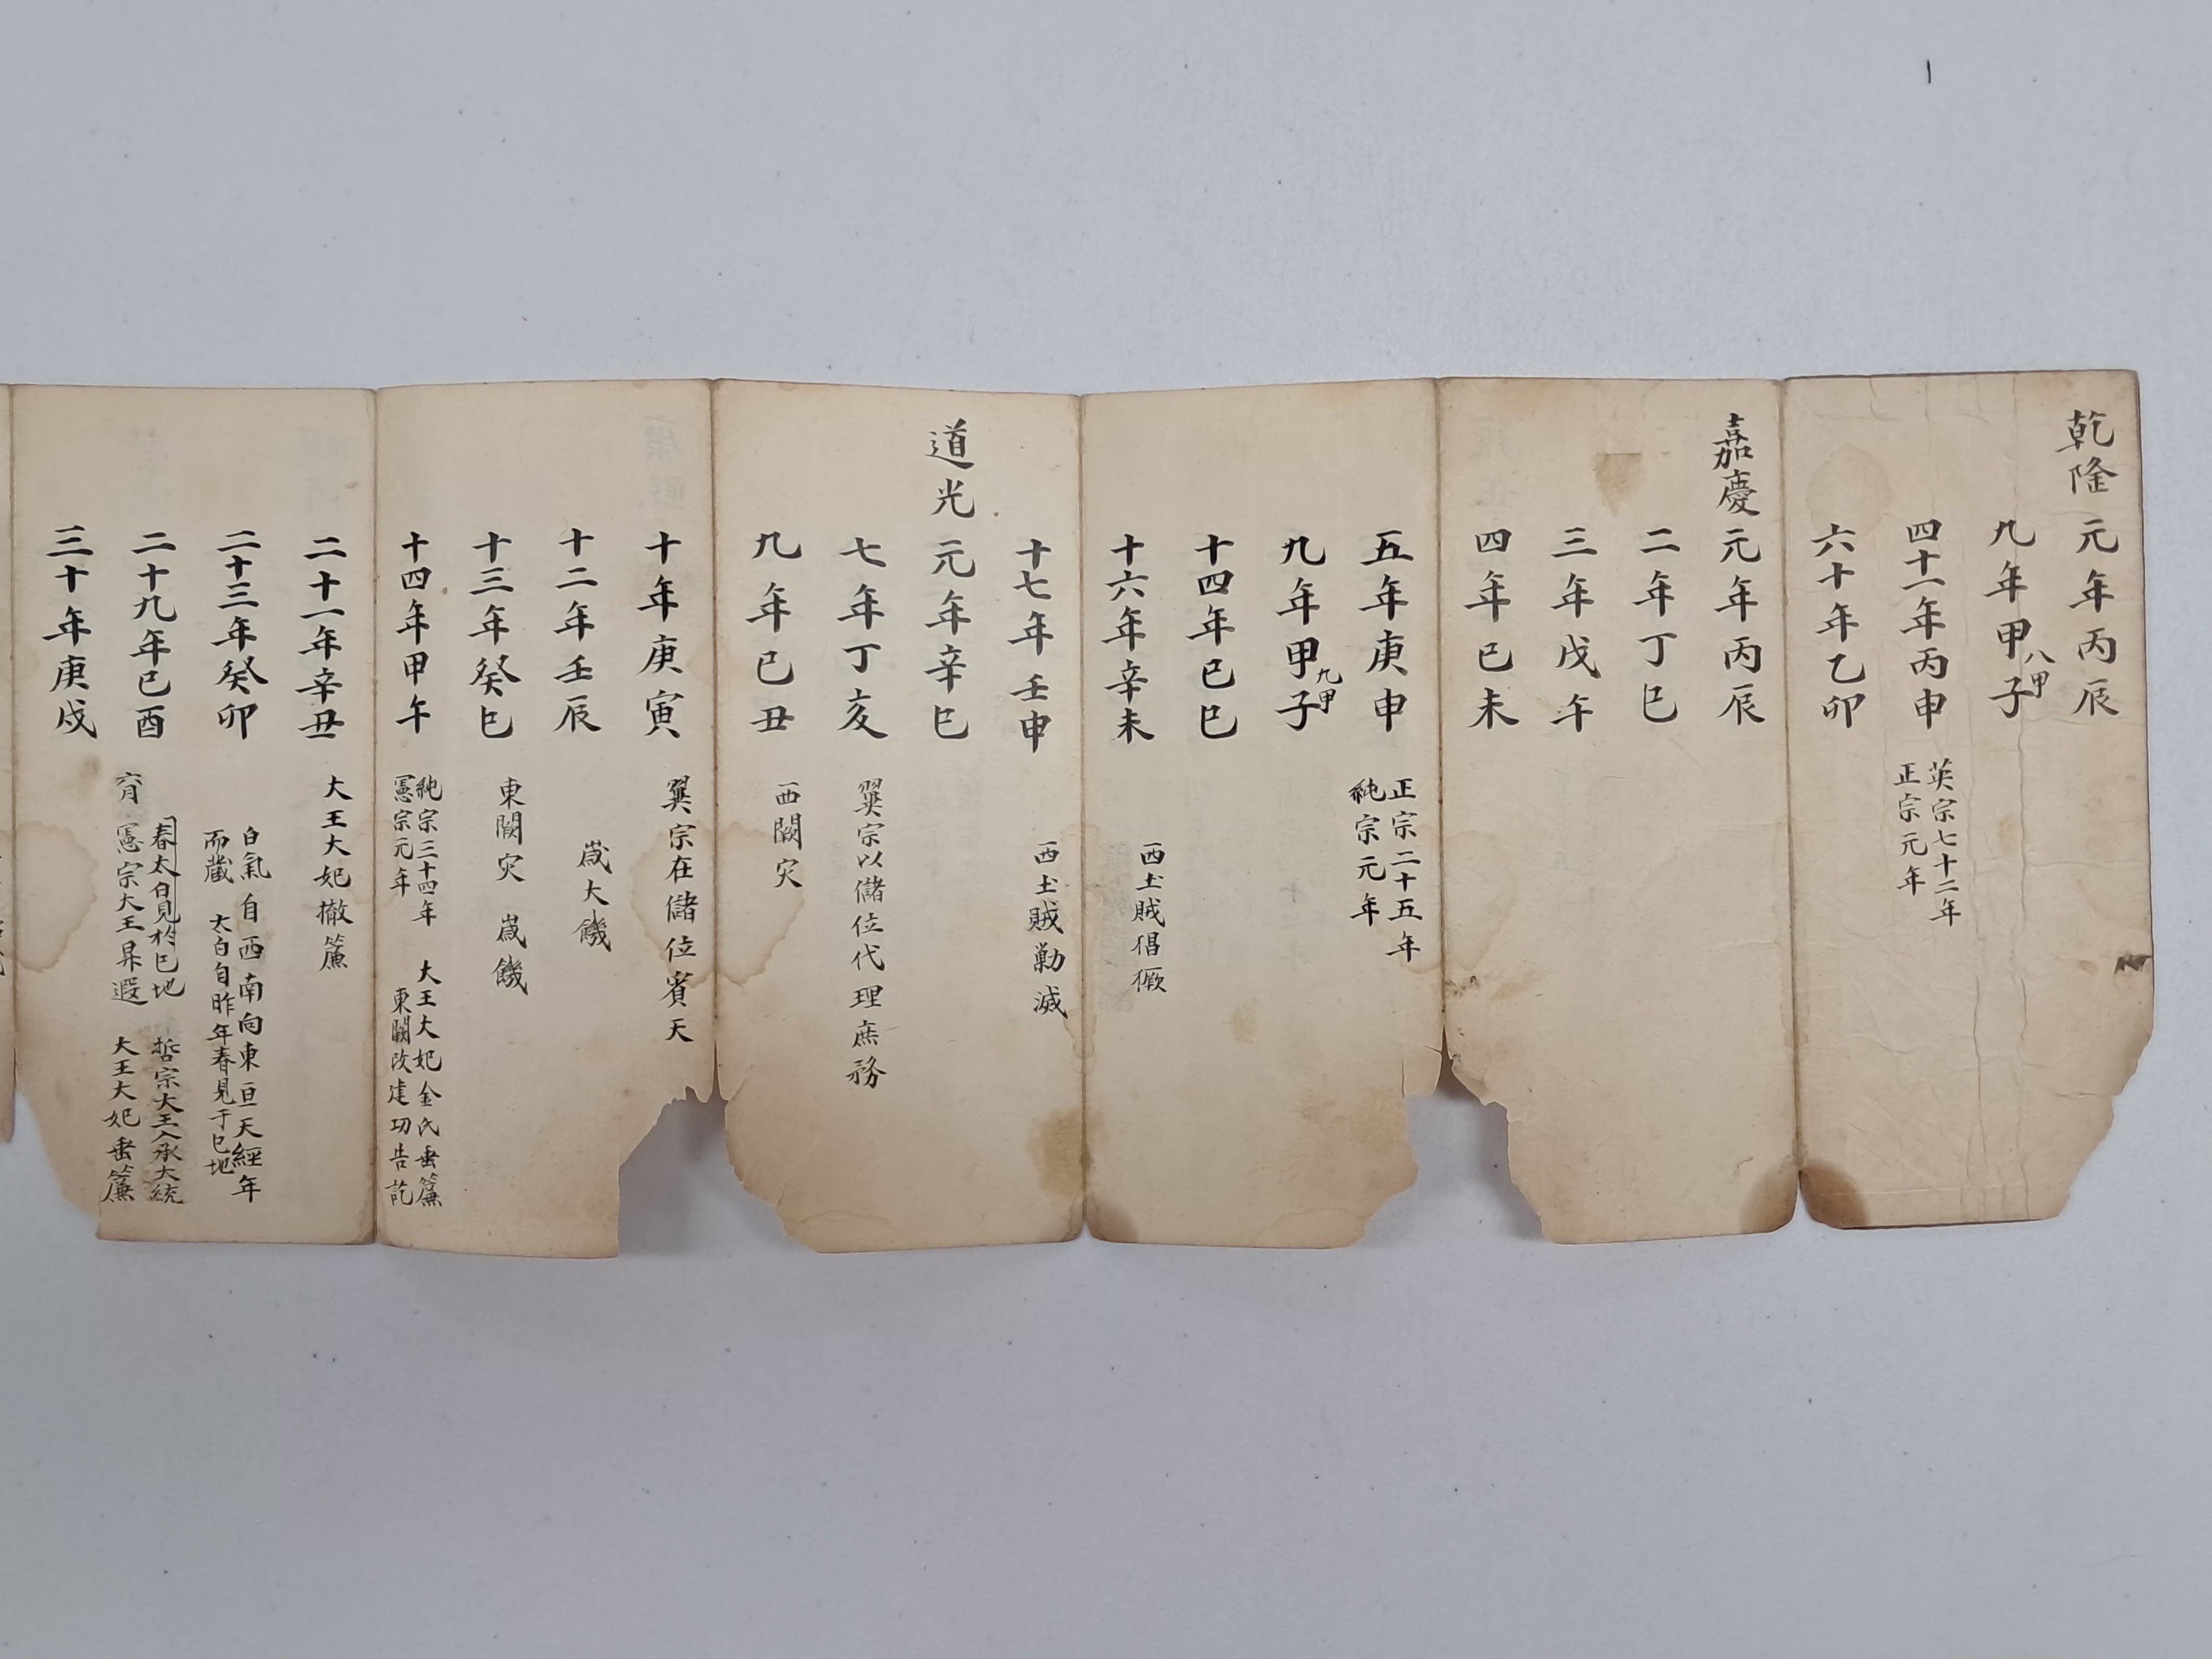 乾隆元年丙辰
九年甲子 八甲
四十一年丙申 英宗七十二年
正宗元年
六十年乙卯
嘉慶元年丙辰
二年丁巳
三年戊午
四年己未
五年庚申 正宗二十五年
純宗元年
九年甲子 九甲
十四年己巳
十六年辛未 西土賊猖獗
十七年壬申 西土賊勦滅
道光元年辛巳
七年丁亥 翼宗以儲位代理庶務
九年己丑 西闕灾
十年庚寅 翼宗在儲位賓天
十二年壬辰 歲大饑
十三年癸巳 東闕灾 歲饑
十四年甲午 純宗三十四年 大王大妃金氏垂簾
憲宗元年 東闕改建功告訖
二十一年辛丑 大王大妃撤簾
二十三年癸卯 白氣自西南向東亘天經年
而蔵 太白自昨年春見于巳地
二十九年己酉 春太白見於巳地 哲宗大王入承大統
憲宗大王昇遐 大王大妃垂簾
三十年庚戌